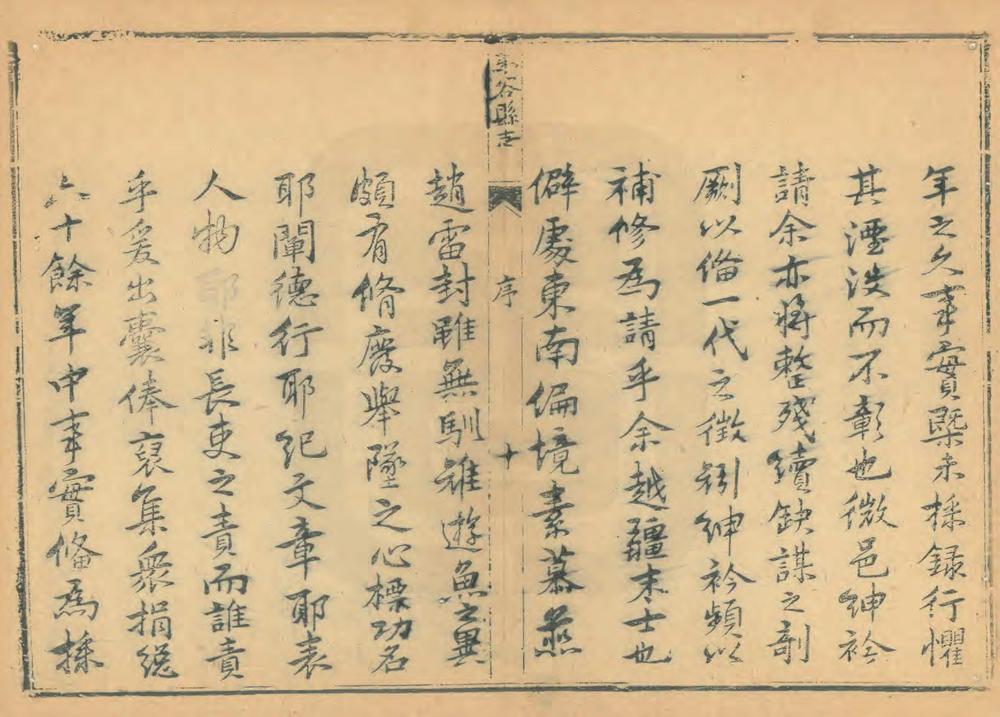 年之久事實槩未採録行懼
其湮没而不彰也微邑紳衿
請余亦將整殘續缺謀之剞
劂以俻一代之徵矧紳衿頻以
補修為請乎余越疆末士也
僻處東南偏境素慕燕
谷縣志
序
十
趙雷封雖無馴雉遊魚之異
頗有脩廢舉墜之心標功名
耶闡德行耶紀文章耶表
人物耶非長吏之責而誰責
乎爰出囊俸裒集衆捐總
六十餘年中事實俻為採